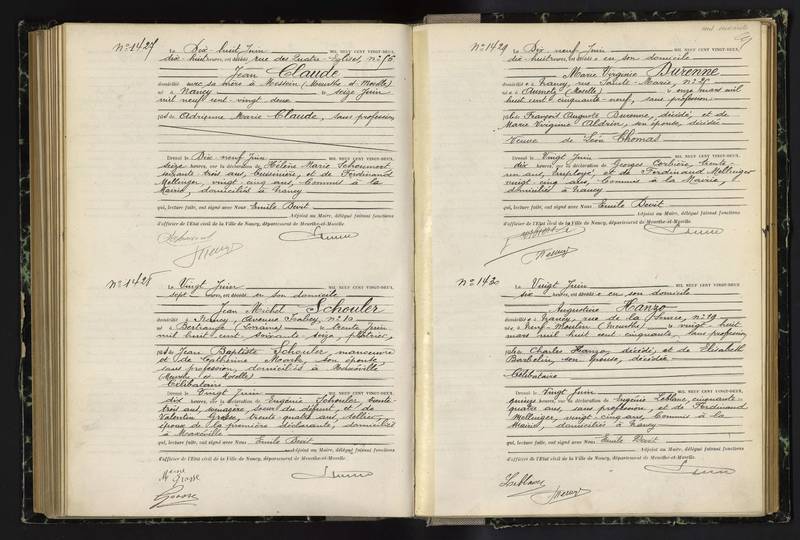 No 1427
Le Dix-huit Juin MIL NEUF CENT VINGT-DEUX,
dix-huit heures, est décédé rue des Quatre-Eglises, no 15
Jean Claude
domicilié avec sa mère à Messein (Meurthe et Moselle)
né à Nancy le seize Juin
mil neuf cent vingt deux
fils de Adrienne Marie Claude, sans profession
Dressé le Dix neuf Juin MIL NEUF CENT VINGT-DEUX,
seize heures, sur la déclaration de Hélène Marie
soixante trois ans, et de Ferdinand
Mellinger, vingt cinq ans, Commis à la
Mairie, domiciliés à Nancy
qui, lecture faite, ont signé avec Nous Emile Devit
Adjoint au Maire, délégué faisant fonctions
d'officier de l'Etat civil de la Ville de Nancy, département de Meurthe-et-Moselle.
No 1428
Le Vingt Juin MIL NEUF CENT VINGT-DEUX,
sept heures, est décédé en son domicile
Jean Michel Schouler
domicilié à Nancy, Avenue no 10
né à Bertrange (Lorraine) le trente Juin
mil huit cent soixante seize, plâtrier,
fils de Jean Baptiste Schouler, manoeuvre
et de Catherine son épouse
sans profession, domiciliés à Maxéville
(Meurthe et Moselle)
Célibataire
Dressé le Vingt Juin MIL NEUF CENT VINGT-DEUX,
dix heures, sur la déclaration de Eugénie Schouler, trente
trois ans, ménagère, soeur du défunt, et de
Valentin Grosse, trente quatre ans, sellier,
époux de la première déclarante, domiciliés
à Maxéville
qui, lecture faite, ont signé avec Nous Emile Devit
Adjoint au Maire, délégué faisant fonctions
d'officier de l'Etat civil de la Ville de Nancy, département de Meurthe-et-Moselle.
Grosse
No 1429
Le Dix neuf Juin MIL NEUF CENT VINGT-DEUX,
dix-huit heures, est décédée en son domicile
Marie Virginie Burenne
domiciliée à Nancy, rue Sainte-Marie, no 25
née à Aumetz (Moselle) le onze mars mil
huit cent cinquante neuf, sans profession
fille de François Auguste Burenne, décédé, et de
Marie Virginie Aldrin, son épouse, décédée
Veuve de Léon Thomas
Dressé le Vingt Juin MIL NEUF CENT VINGT-DEUX,
dix heures, sur la déclaration de Georges trente-
un ans, employé, et de Ferdinand Mellinger
vingt cinq ans, Commis à la Mairie,
domiciliés à Nancy
qui, lecture faite, ont signé avec Nous Emile Devit
Adjoint au Maire, délégué faisant fonctions
d'officier de l'Etat civil de la Ville de Nancy, département de Meurthe-et-Moselle.
No 1430
Le Vingt Juin MIL NEUF CENT VINGT-DEUX,
dix heures, est décédée en son domicile
Augustine Hanzo
domiciliée à Nancy, rue de la Source, no 19
née à Neuf-Moulin (Meurthe) le vingt huit
mars mil huit cent cinquante, sans profession
fille de Charles Hanzo, décédé, et de Elisabeth
Barbelin, son épouse, décédée
Célibataire
Dressé le Vingt Juin MIL NEUF CENT VINGT-DEUX,
quinze heures, sur la déclaration de Eugénie Leblanc, cinquante
quatre ans, sans profession, et de Ferdinand
Mellinger, vingt cinq ans, Commis à la
Mairie, domiciliés à Nancy
qui, lecture faite, ont signé avec Nous Emile Devit
Adjoint au Maire, délégué faisant fonctions
d'officier de l'Etat civil de la Ville de Nancy, département de Meurthe-et-Moselle.
Leblanc